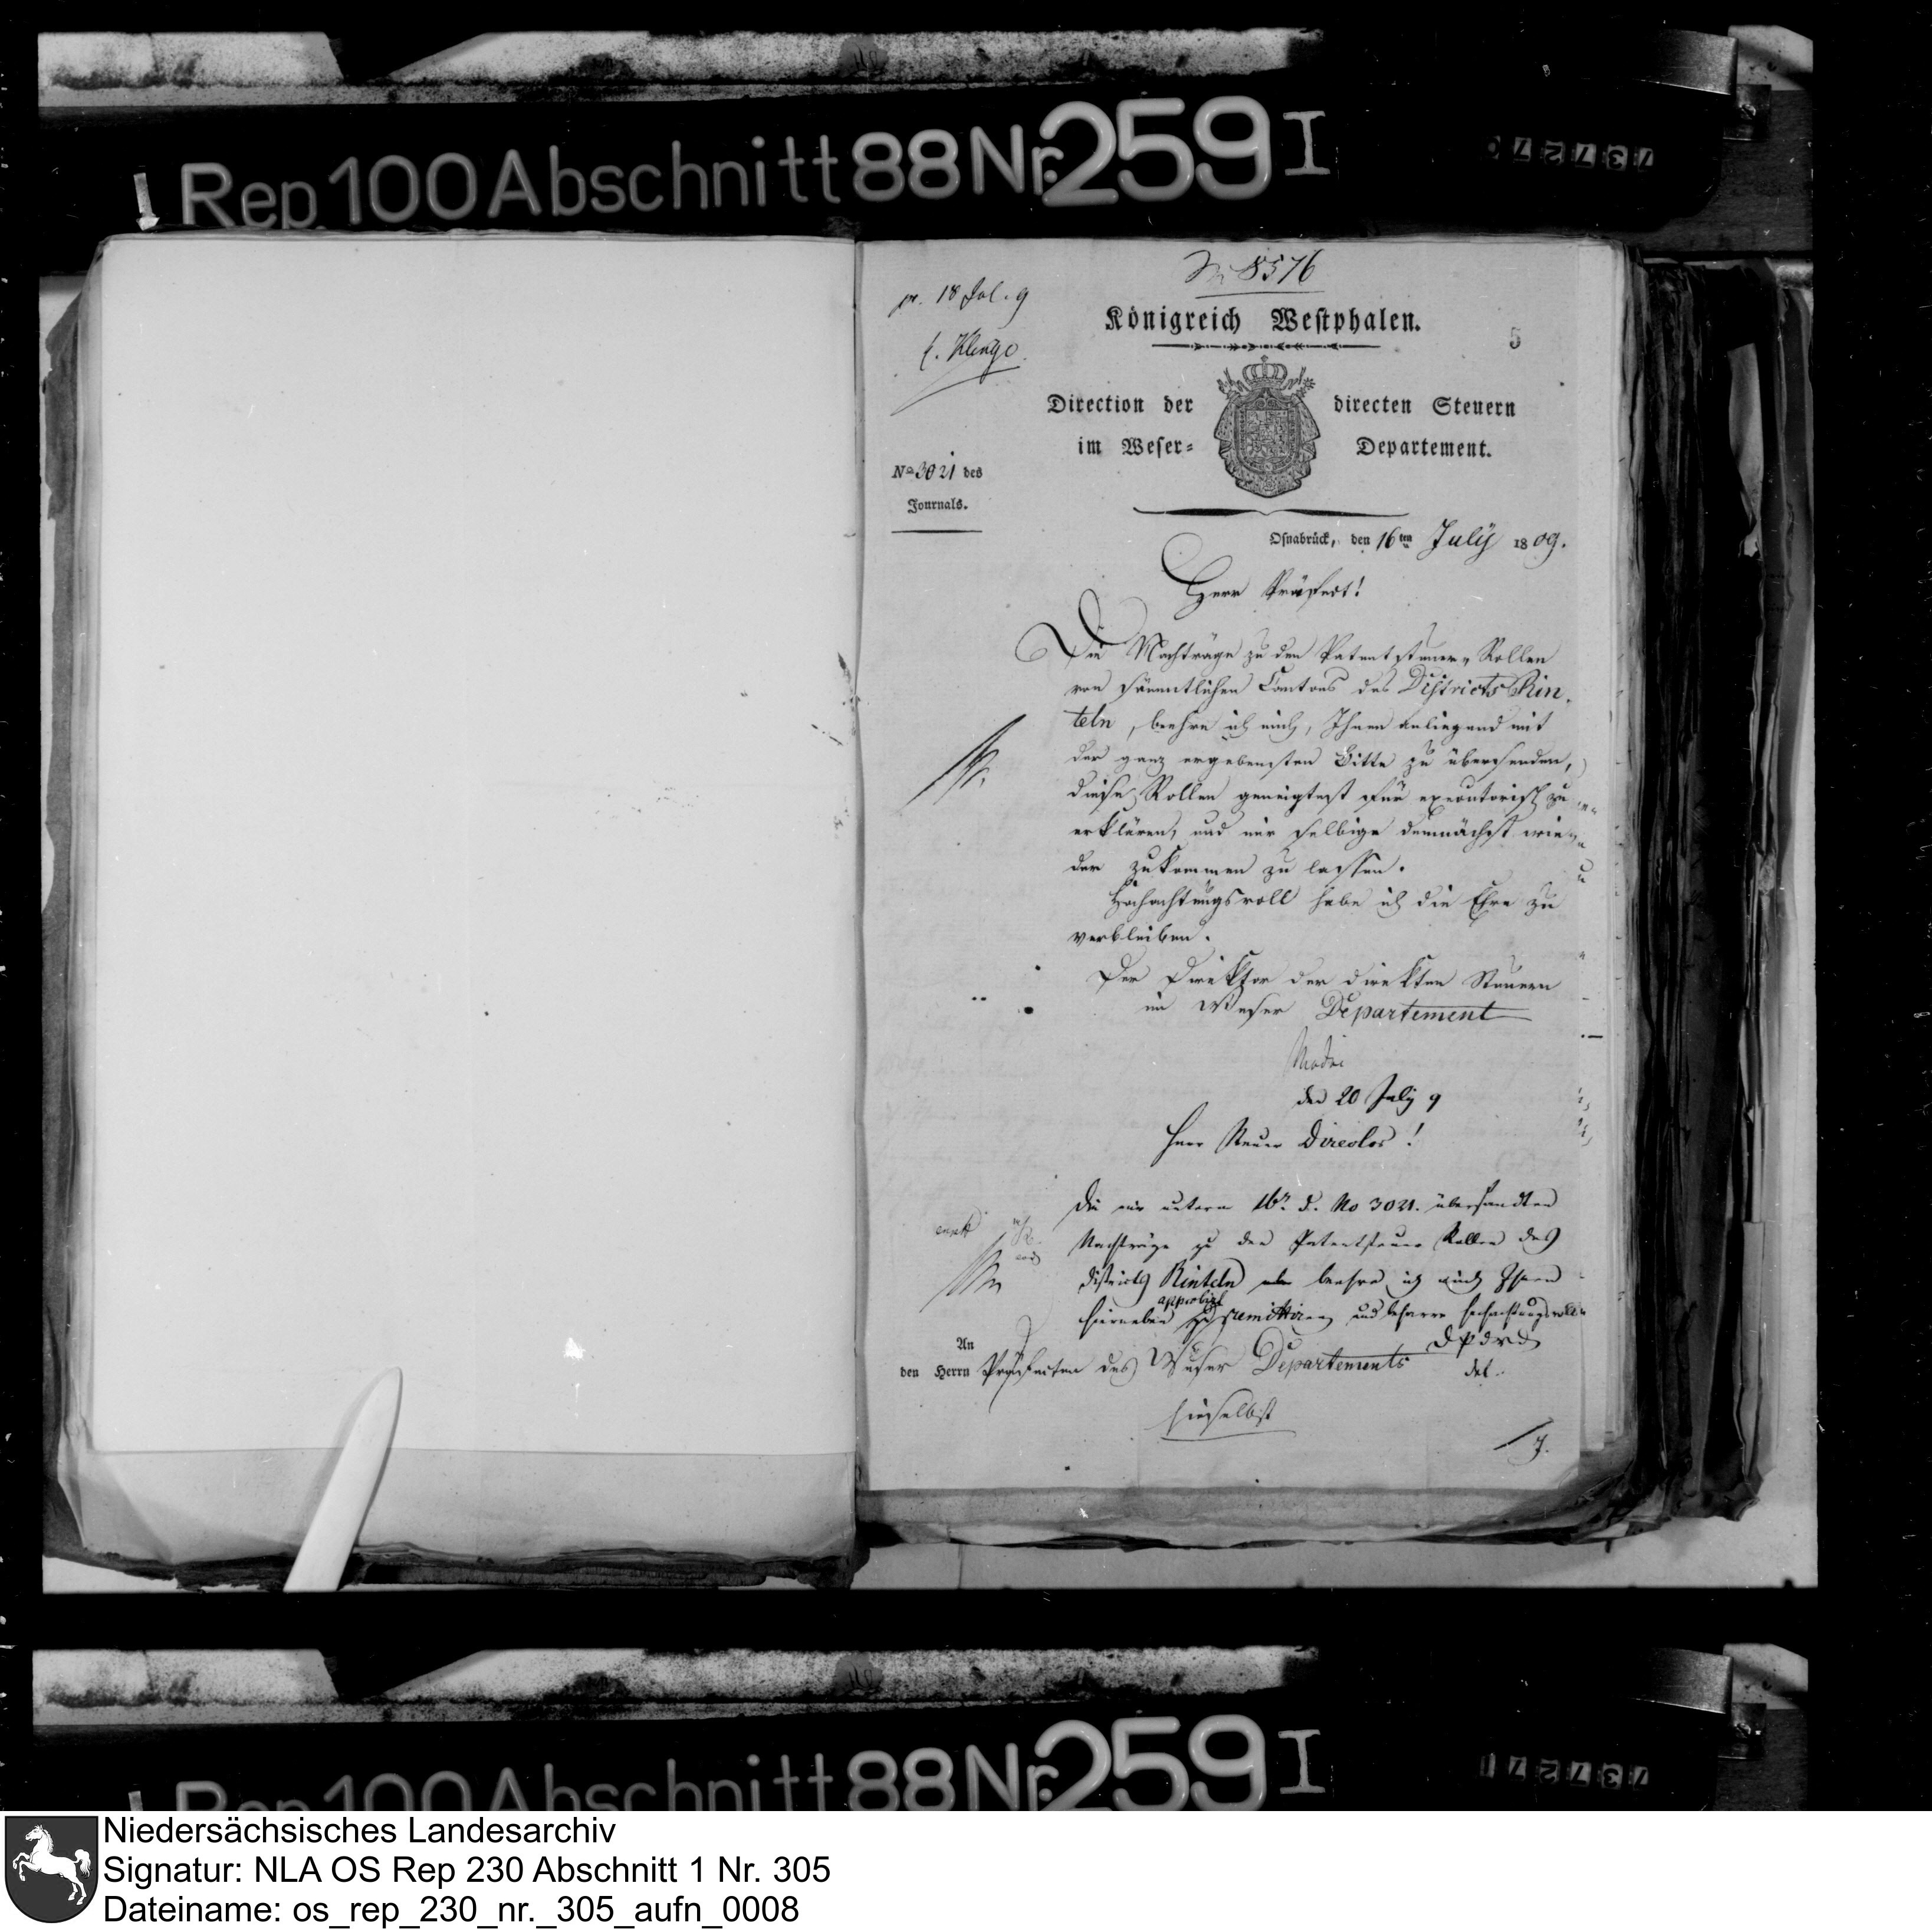 Rep. 100 Abschnitt 88 Nr. 259 I
No 8576
pr. 18 Jul. 9
Königreich Westphalen.
5
Direction der directen Steuern
im Weser- Departement.
No 3021 des
Journals.
Osnabrück, den 16ten July 1809.
Herr Präfect!
Die Nachträge zu den Patentsteuer-Rollen
von sämmtlichen Cantons des Districts Rin-
teln, beehre ich mich, Ihnen anliegend mit
der ganz ergebensten Bitte zu übersenden,
diese Rollen geneigtest für executorisch zu
erklären, und mir selbige demnächst wie-
der zukommen zu lassen.
Hochachtungsvoll habe ich die Ehre zu
verbleiben.
Der Direktor der direkten Steuern
im Weser Departement
den 20 July 9
Herr Steuer Director!
Die mir unterm 16n d. No 3021. übersandten
Nachträge zu den Patentsteuer Rollen des
Districts Rinteln beehre ich mich Ihnen
hierneben approbirt zu remittiren und beharre hochachtungsvoll
An
den Herrn Präfecten des Weser Departements
hieselbst
Rep. 100 Abschnitt 88 Nr. 259 I
Niedersächsisches Landesarchiv
Signatur: NLA OS Rep 230 Abschnitt 1 Nr. 305
Dateiname: os_rep_230_nr._305_aufn_0008